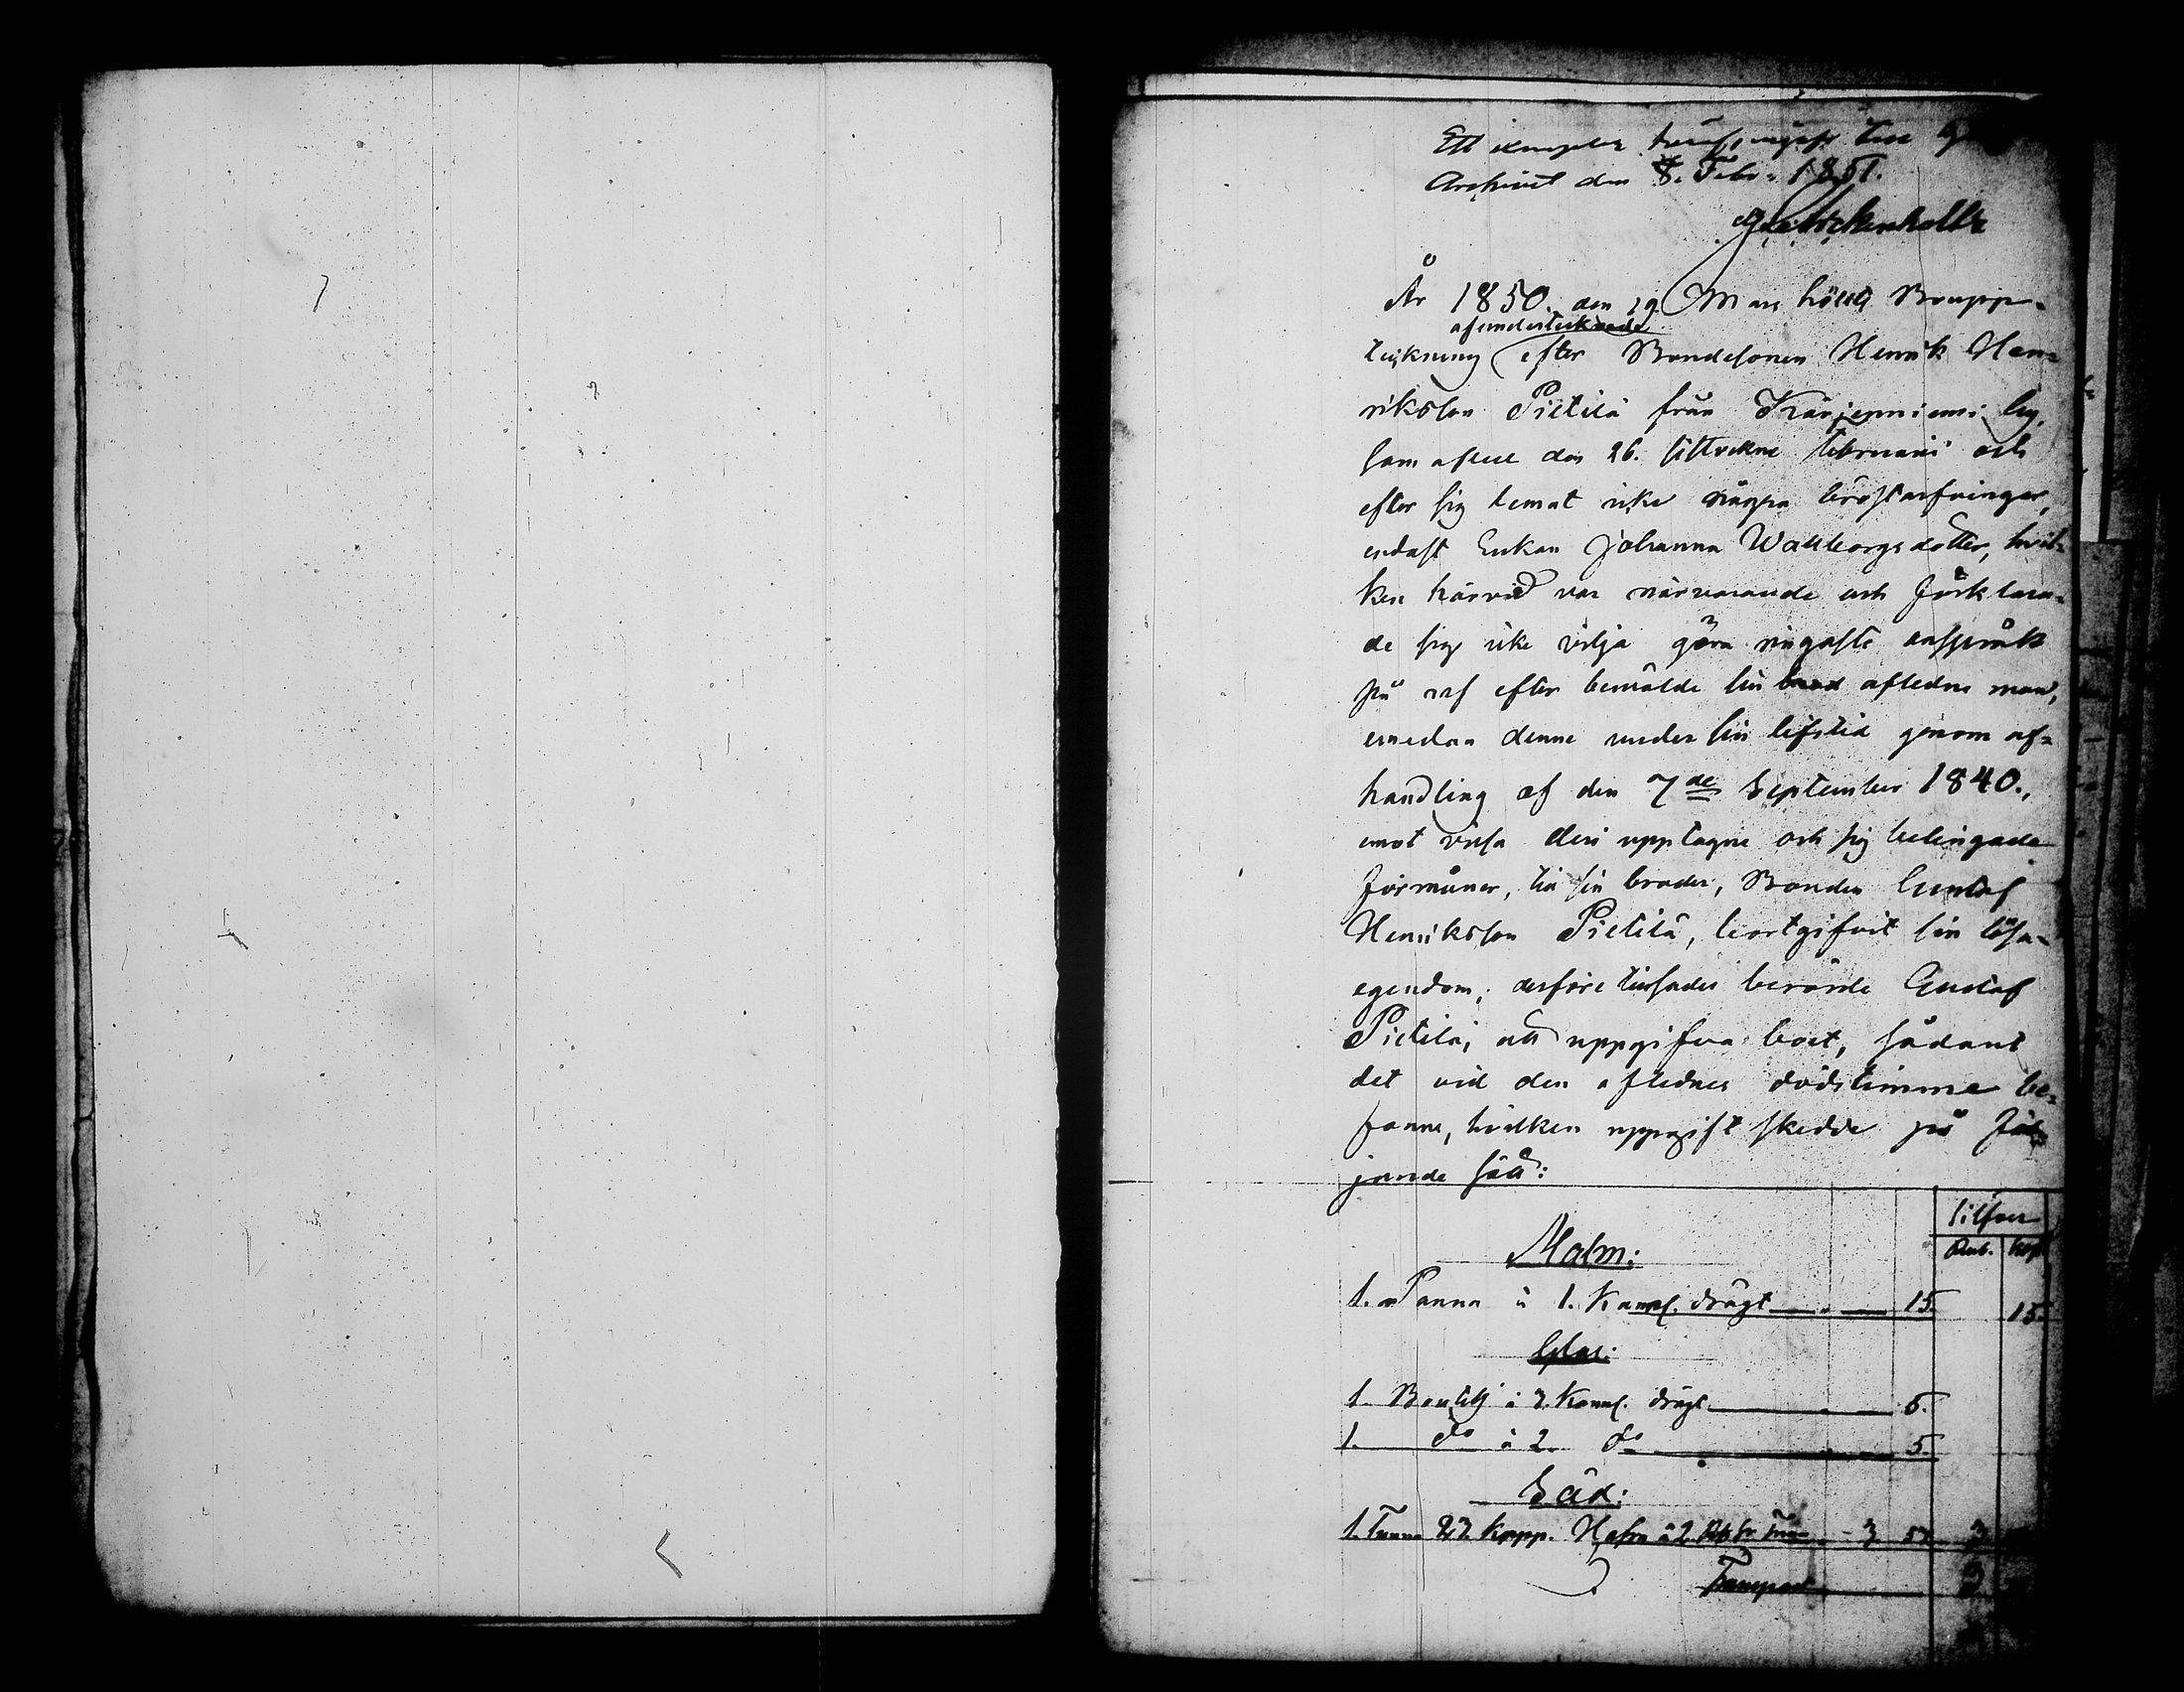 Ett exemplar till
Archivet den 8. Febr. 1851.
År 1850. den 19 Mars hölls Boupp-
afundertecknade
teckning efter Bondesonen Henrik Hen-
riksson Pietilä från Karjenniemi by,
som afled den 26. sittvekne Februarii och
efter sig lemnat icke några bröstarfvingar,
endast Enkan Johanna Wallborgsdotter, hvil-
ken härvid var närvarande och förklara-
de sig icke vilja göra ringaste anspråk
på arf efter bemälde sin afledne man,
emedan denne under sin lifstid genom af-
handling af den 7de September 1840.,
emot vissa deri upptagne och sig betingade
förmåner, till sin broder, Bonden Gustaf
Henriksson Pietilä, bortgifvit sin lösa-
egendom; derföre tillsades berörde Gustaf
Pietilä, att uppgifva boet, sådant
det vid den aflednes dödstimme be-
fanns, hvilken uppgift skedde på föl-
jande sätt:
Silfver
Rub. Kop.
Malm:
1. Panna à 1. Kanns. drägt 15. 15.
Glas:
1. Boutelj à 3. Kanns. drägt 6.
1. do à 2. do 5.
Säd:
1. Tunna 23. Kapp. Hafra à 2. Rub. pr Tunna 3 3
Transport